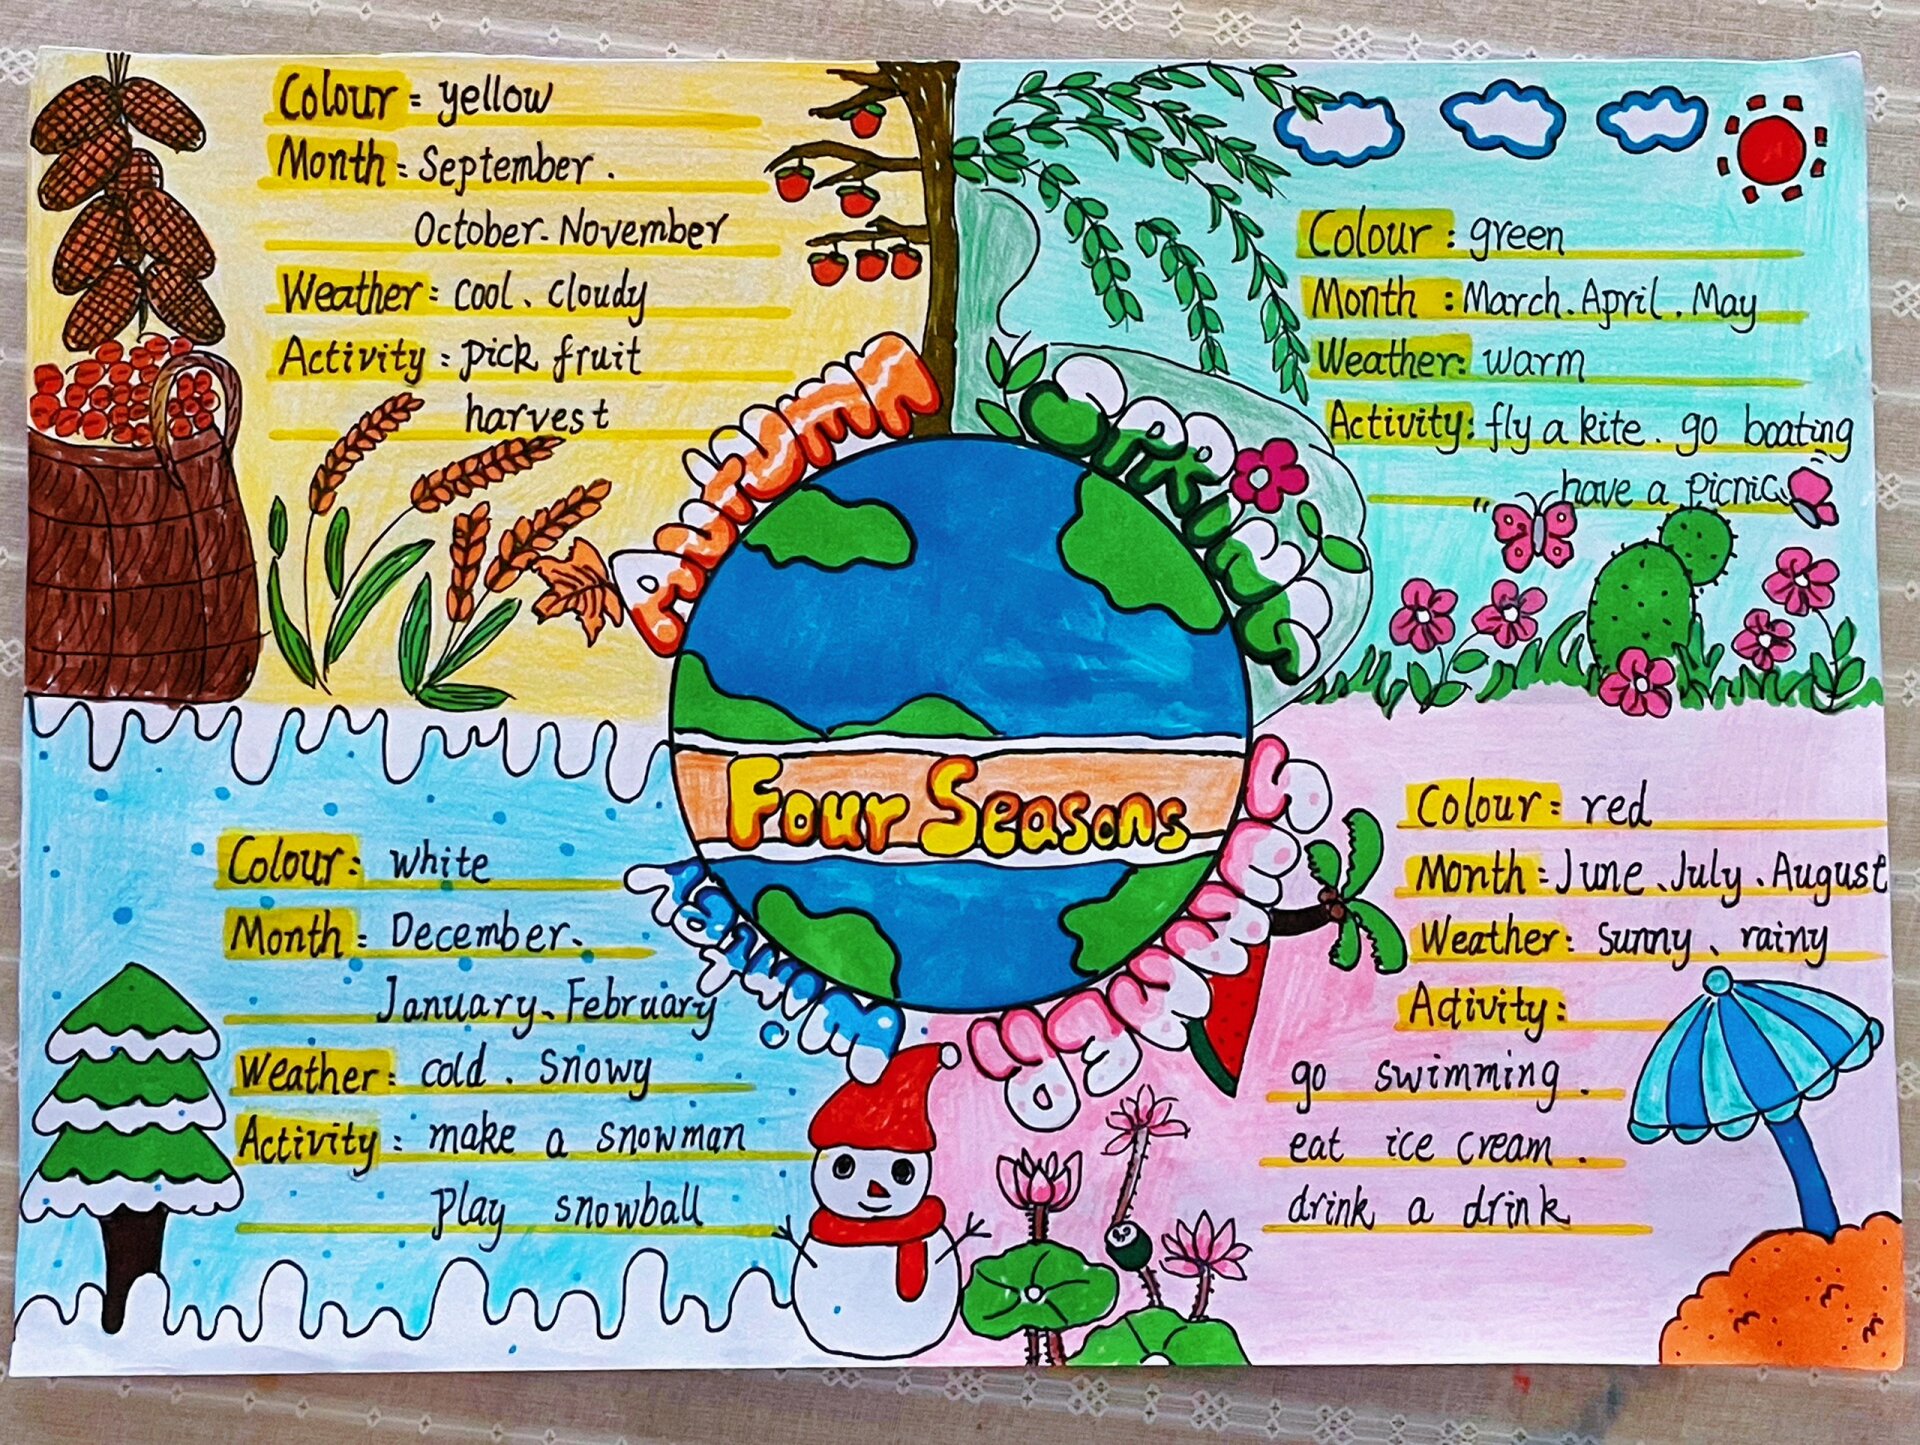 Colour: yellow
Month: September.
October. November
Weather: cool、cloudy
Activity: pick fruit
harvest
AUTUMN
Colour: green
Month: March. April. May
Weather: warm
Activity: fly a kite. go boating
have a picnic
SPRING
Four Seasons
Colour: white
Month: December、
January、February
Weather: cold. snowy
Activity: make a snowman
play snowball
WINTER
Colour: red
Month: June、July、August
Weather: sunny、rainy
Activity:
go swimming.
eat ice cream.
drink a drink
SUMMER